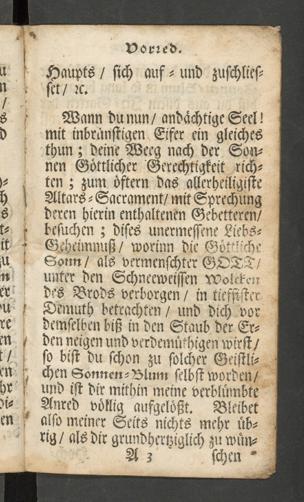 Vorred.
Haupts / sich auf = und zuschlies=
set / ꝛc.
Wann du nun / andächtige Seel!
mit inbrünstigen Eifer ein gleiches
thun ; deine Weeg nach der Son=
nen Göttlicher Gerechtigkeit rich=
ten ; zum öftern das allerheiligiste
Altars=Sacrament / mit Sprechung
deren hierin enthaltenen Gebetteren /
besuchen ; dises unermessene Liebs=
Geheimnuß / worinn die Göttliche
Sonn / als vermenschter GOTT /
unter den Schneeweissen Wolcken
des Brods verborgen / in tieffister
Demuth betrachten / und dich vor
demselben biß in den Staub der Er=
den neigen und verdemüthigen wirst /
so bist du schon zu solcher Geistli=
chen Sonnen=Blum selbst worden /
und ist dir mithin meine verblümbte
Anred völlig aufgelößt. Bleibet
also meiner Seits nichts mehr üb=
rig / als dir grundhertziglich zu wün=
A 3 schen